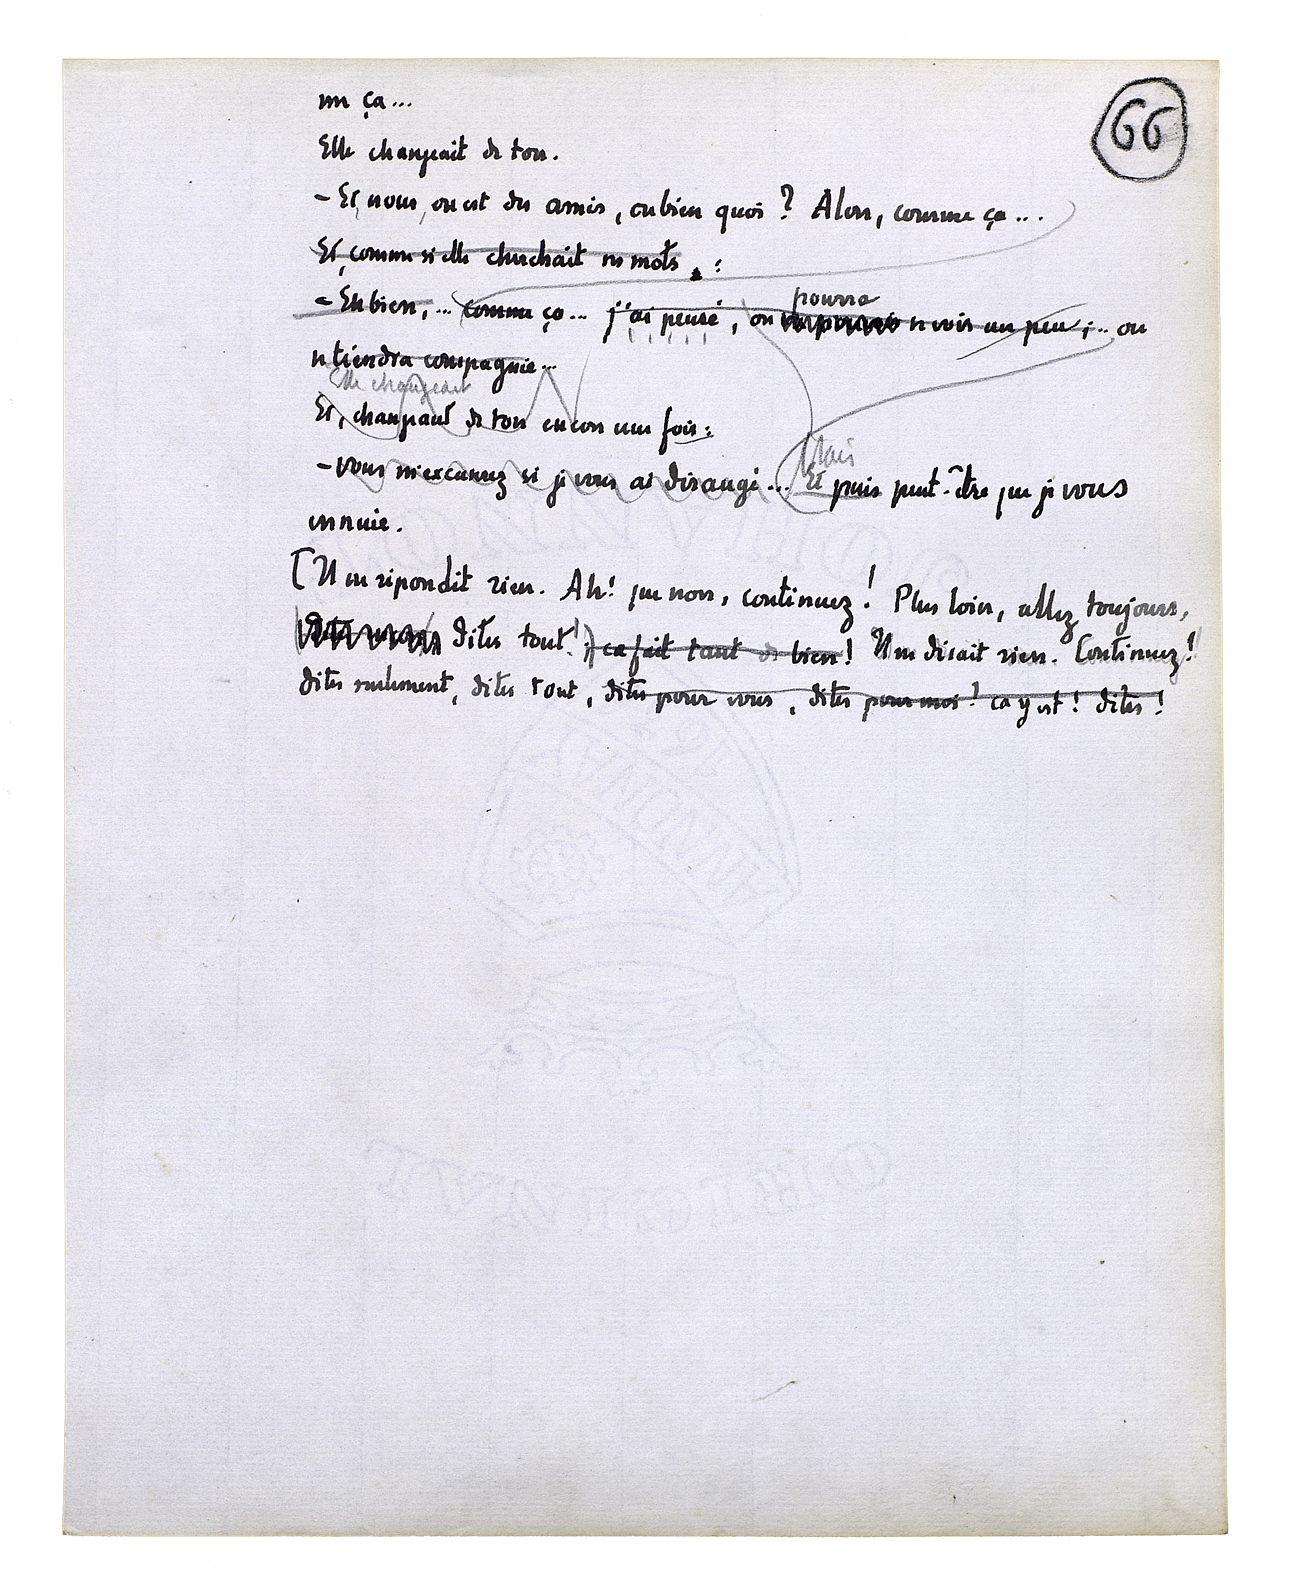 66
un ça...
Elle changeait de ton.
– Et, nous, on est des amis, ou bien quoi ? Alors, comme ça...
Et, comme si elle cherchait ses mots :
– Eh bien, ... comme ça... j'ai pensé, on
pourra
se voir un peu, ... on
se tiendra compagnie...
Elle changeait
Et, changeant de ton encore une fois :
Mais
– Vous m'excuserez si je vous ai dérangé... Et puis peut-être que je vous
ennuie.
[Il ne répondit rien. Ah! que non, continuez! Plus loin, allez toujours,
dites tout! ça fait tant de bien! Il ne disait rien. Continuez!
dites seulement, dites tout, dites pour vous, dites pour moi! ça y est! dites!